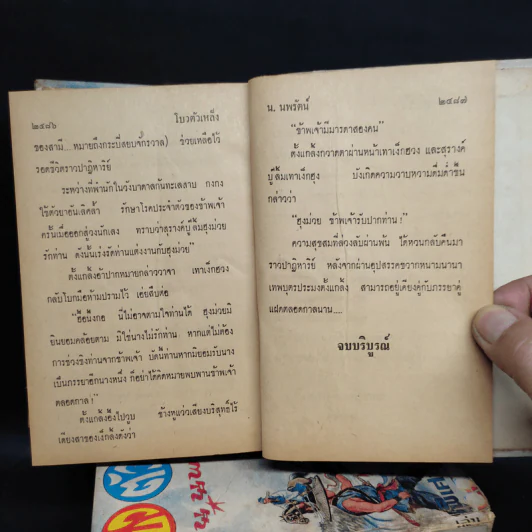 ๒๔๘๖ โบวตัวเหล็ง
ของสามี...หมายถึงกระบี่สยบจักรวาล) ช่วยเหลือไว้
รอดชีวิตราวปาฏิหาริย์
ระหว่างที่พำนักในวังบาดาลก้นทะเลสาบ กงกง
ใช้ตัวยาอันเลิศล้ำ รักษาโรคประจำตัวของข้าพเจ้า
ครั้นเมื่อออกสู่วงนักเลง ทราบว่าสุรางค์บู๊ลิ้มฮุงม่วย
รักท่าน ดังนั้นเร่งรัดท่านแต่งงานกับฮุงม่วย"
ตั้งแกล้งอ้าปากหมายกล่าววาจา เทาเง็กฮวง
กลับโบกมือห้ามปรามไว้ เอ่ยสืบต่อ
"ฮ้อนั้งกอ นี่ไม่อาจตามใจท่านได้ ฮุงม่วยมิ
ยินยอมคล้อยตาม มิใช่นางไม่รักท่าน หากแต่ไม่ต้อง
การช่วงชิงท่านจากข้าพเจ้า บัดนี้ท่านหากมิยอมรับนาง
เป็นภรรยาอีกนางหนึ่ง ก็อย่าได้คิดหมายพบพานข้าพเจ้า
ตลอดกาล!"
ตั้งแกล้งอึ้งไปวูบ ข้างหูแว่วเสียงบริสุทธิ์ไร้
เดียงสาของเง็กล้งดังว่า
น. นพรัตน์ ๒๔๘๗
"ข้าพเจ้ามีมารดาสองคน"
ตั้งแกล้งกวาดตาผ่านหน้าเทาเง็กฮวง และสุรางค์
บู๊ลิ้มเทาเง็กฮุง บังเกิดความวาบหวามดื่มด่ำขึ้น
กล่าวว่า
"ฮุงม่วย ข้าพเจ้ารับปากท่าน!"
ความสุขสมที่ล่วงลับผ่านพ้น ได้หวนกลับคืนมา
ราวปาฏิหาริย์ หลังจากผ่านอุปสรรคขวากหนามนานา
เทพบุตรประมงตั้งแกล้ง สามารถอยู่เคียงคู่กับภรรยาคู่
แฝดตลอดกาลนาน....
จบบริบูรณ์